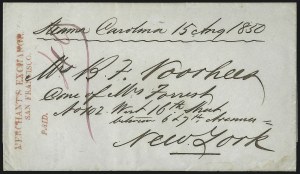 Steamer Carolina 15 Aug 1850
MERCHANT'S EXCHANGE
SAN FRANCISCO.
PAID.
Mr B. F. Voorhees
Care of Mrs Forrest
No 102. West 16th Street
between 6 & 7th Avenues
New York